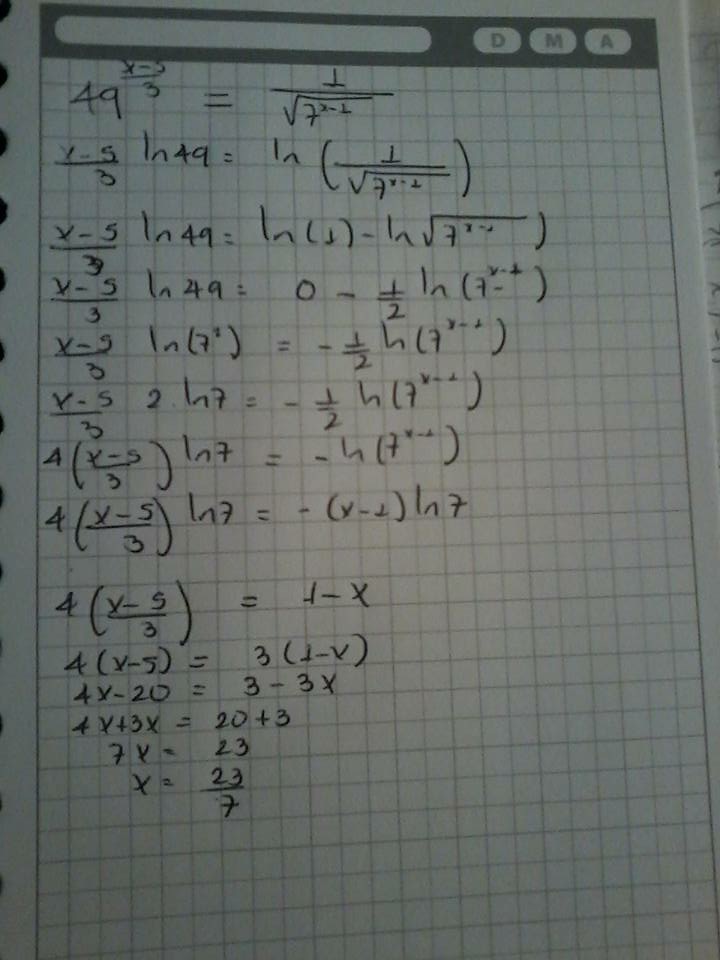 D M A
49^((x-5)/3) = 1/√(7^(x-1))
(x-5)/3 ln 49 = ln (1/√(7^(x-1)))
(x-5)/3 ln 49 = ln(1) - ln √(7^(x-1)) )
(x-5)/3 ln 49 = 0 - 1/2 ln (7^(x-1))
(x-5)/3 ln(7^2) = - 1/2 ln(7^(x-1))
(x-5)/3 2 . ln 7 = - 1/2 ln(7^(x-1))
4 ((x-5)/3) ln 7 = - ln(7^(x-1))
4 ((x-5)/3) ln 7 = - (x-1) ln 7
4 ((x-5)/3) = 1-x
4 (x-5) = 3 (1-x)
4x-20 = 3 - 3x
4x+3x = 20+3
7x = 23
x = 23/7